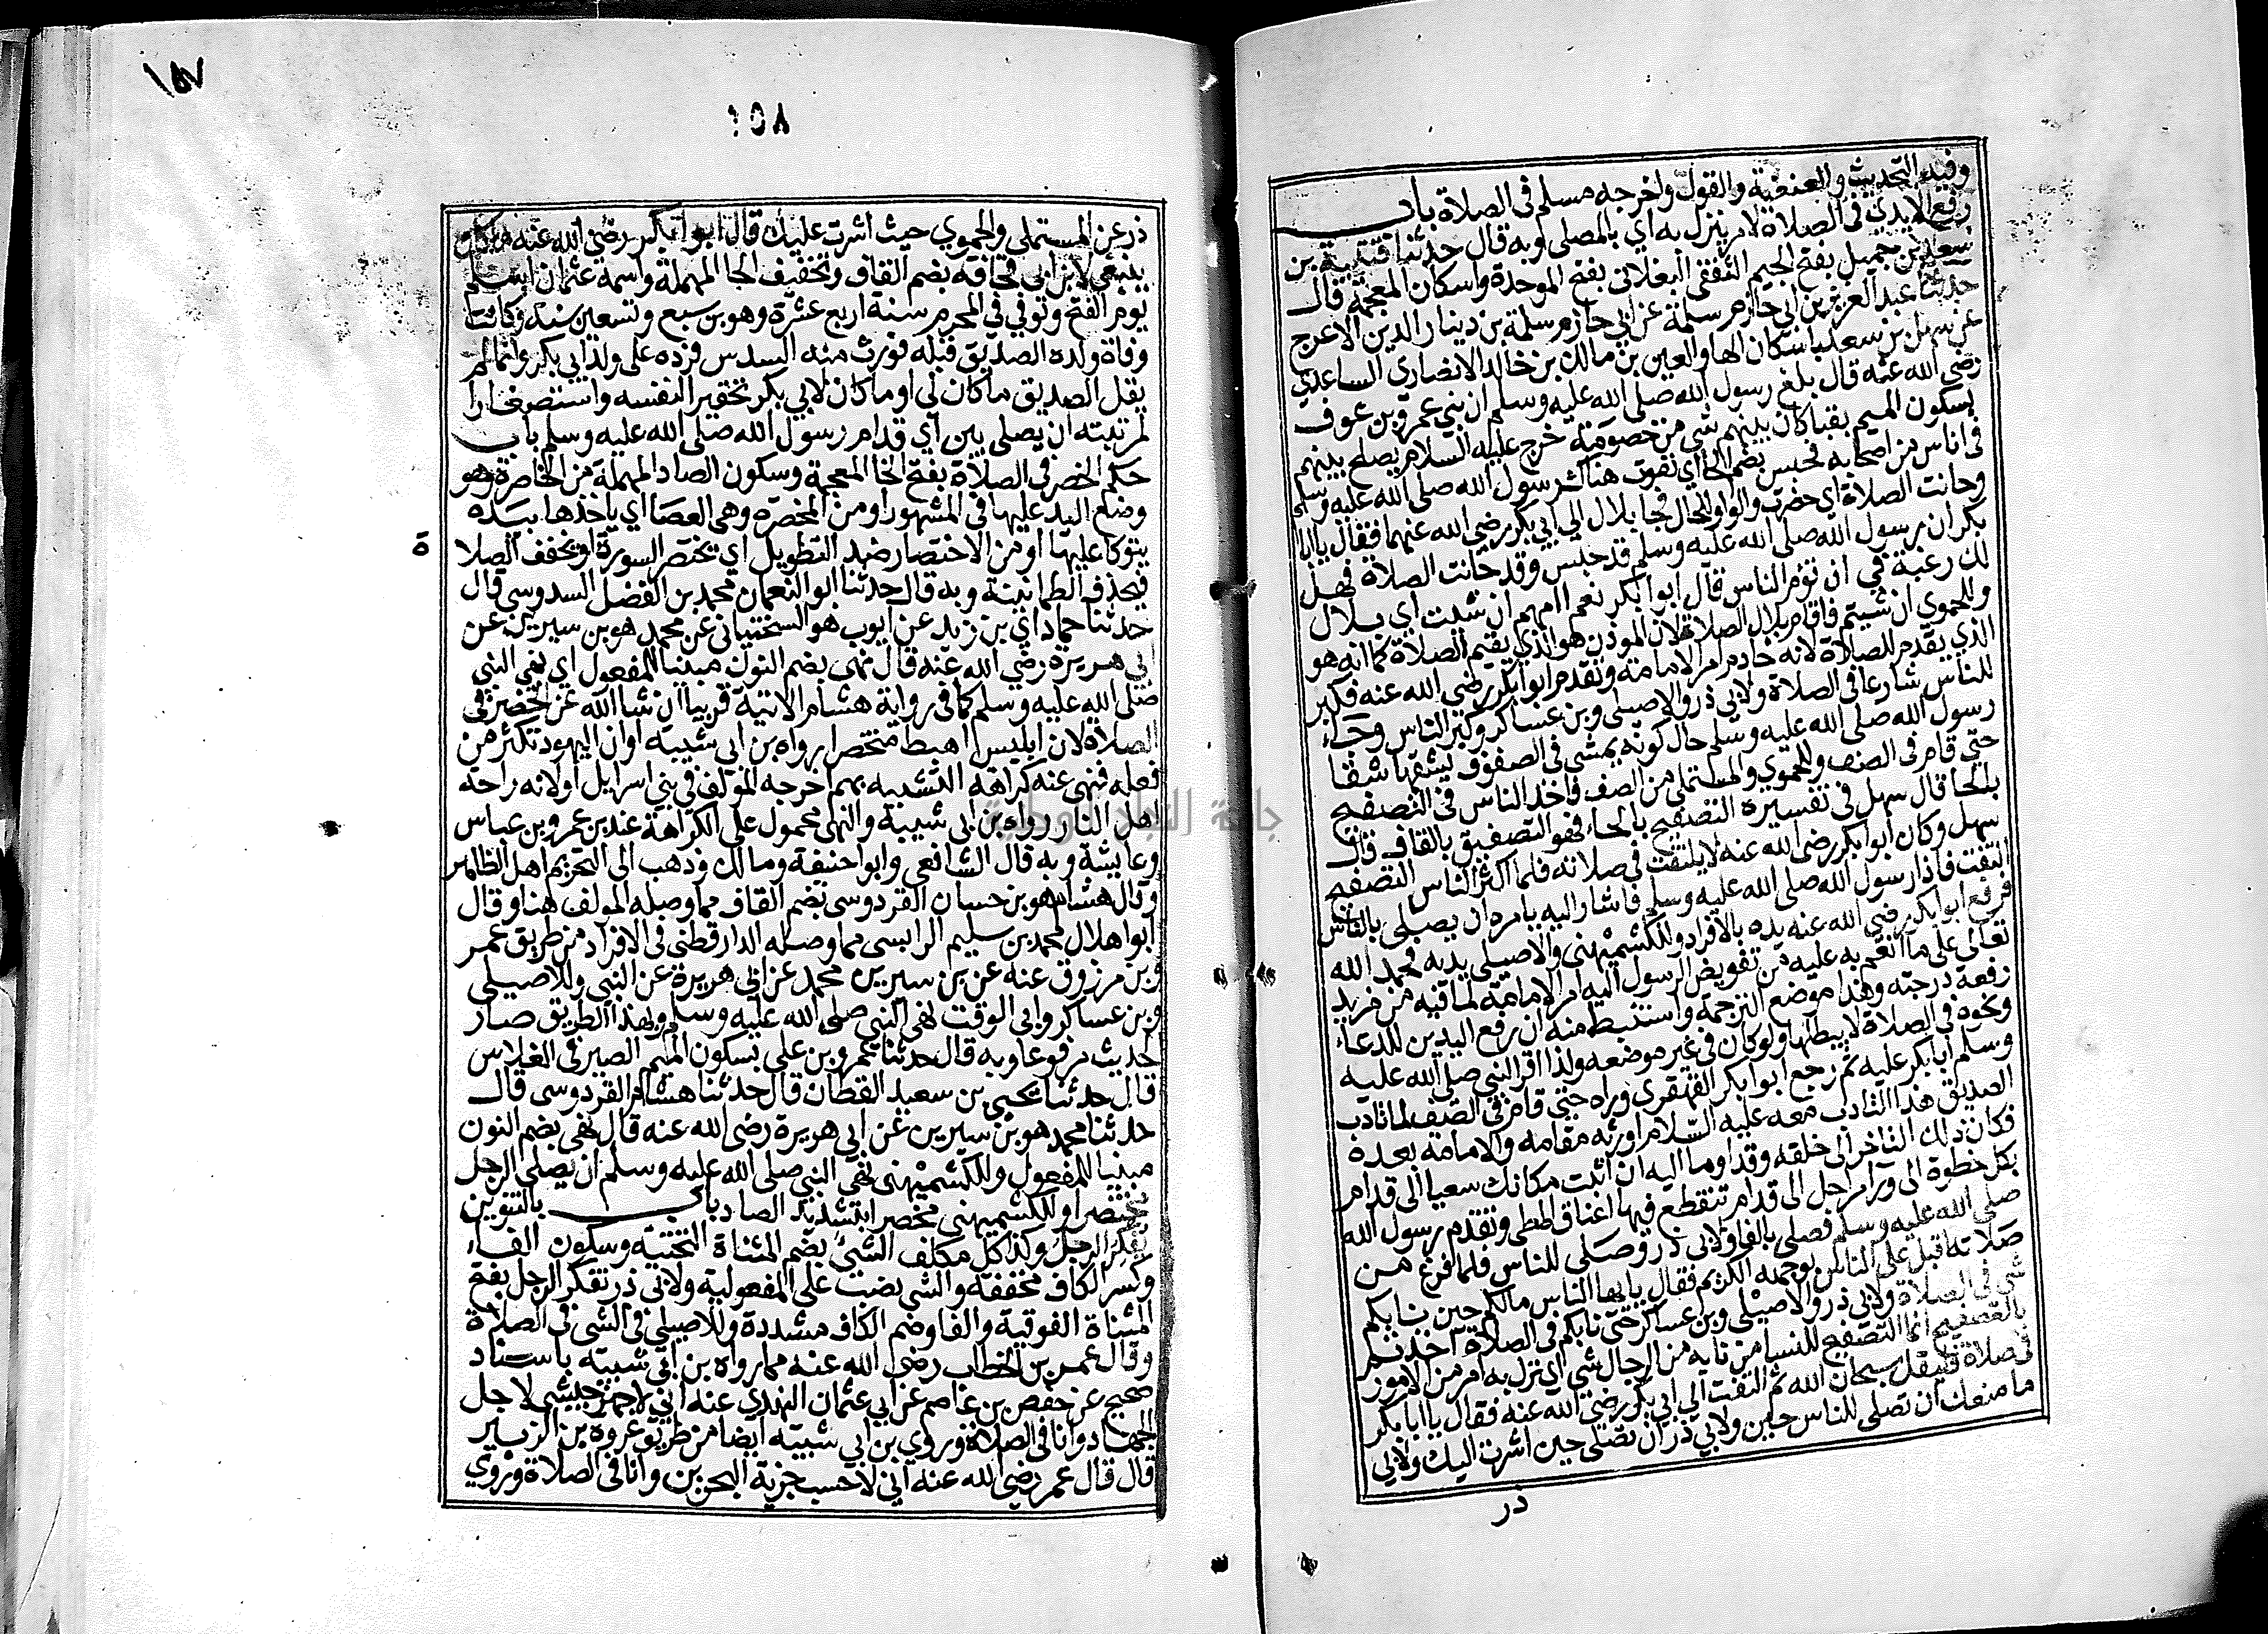 وفيه التحديث والعنعنة والقول واخرجه مسلم في الصلاة باب
رفع الايدي في الصلاة لامر ينزل به اي بالمصلي وبه قال حدثنا قتيبة بن
سعيد بن جميل بفتح الجيم الثقفي البغلاني بفتح الموحدة واسكان المعجمة قال
حدثنا عبد العزيز بن ابي حازم سلمة عن ابي حازم سلمة بن دينار الدين الاعرج
عن سهل بن سعد باسكان الها والعين بن مالك بن خالد الانصاري الساعدي
رضي الله عنه قال بلغ رسول الله صلى الله عليه وسلم ان بني عمرو بن عوف
بسكون الميم بقبا كان بينهم شي من خصومة خرج عليه السلام يصلح بينهم
في اناس من اصحابه فحبس بضم الحا اي تعوق هناك رسول الله صلى الله عليه وسلم
وحانت الصلاة اي حضرت والواو للحال فجا بلال الي ابي بكر رضي الله عنهما فقال يا ابا
بكر ان رسول الله صلى الله عليه وسلم قد حبس وقد حانت الصلاة فهل
لك رغبة في ان تؤم الناس قال ابوا بكر نعم اامهم ان شئت اي بلال
وللحموي ان شيتم فاقام بلال الصلاة لان الموذن هو الذي يقيم الصلاة كما انه هو
الذي يقدم للصلاة لانه خادم امر الامامة وتقدم ابوا بكر رضي الله عنه فكبر
للناس شارعا في الصلاة ولابي ذر والاصيلي وبن عساكر وكبر الناس وجاء
رسول الله صلى الله عليه وسلم حال كونه يمشي في الصفوف يشقها شقا
حتى قام في الصف وللحموي والمستملي من الصف فاخذ الناس في التصفيح
بالحا قال سهل في تفسيره التصفيح بالحاء فهو التصفيق بالقاف قال
سهل وكان ابوا بكر رضي الله عنه لا يلتفت في صلاته فلما اكثر الناس التصفيح
التفت فاذا رسول الله صلى الله عليه وسلم فاشار اليه يامره ان يصلي بالناس
فرفع ابوا بكر رضي الله عنه يده بالافراد وللكشميهني والاصيلي يديه فحمد الله
تعالى على ما انعم به عليه من تفويض الرسول اليه امر الامامة لما فيه من مزيد
رفعة درجته وهذا موضع الترجمة واستنبط منه ان رفع اليدين للدعاء
ونحوه في الصلاة لا يبطلها ولو كان في غير موضعه ولذا اقر النبي صلى الله عليه
وسلم ابا بكر عليه ثم رجع ابوا بكر القهقرى وراه حتى قام في الصف لما تادب
الصديق هذا التادب معه عليه السلام اورثه مقامه والامامة بعده
فكان ذلك التاخر الى خلفه وقد اوما اليه ان اثبت مكانك سعيا الى قدام
بكل خطوة الى ورا مراحل الى قدام تنقطع فيها اعناق المطي وتقدم رسول الله
صلى الله عليه وسلم فصلي بالفا ولابي ذر وصلى للناس فلما فرغ من
صلاته اقبل على الناس بوجهه الكريم فقال يا ايها الناس مالكم حين نابكم
شي في الصلاة ولابي ذر والاصيلي وبن عساكر حتى نابكم في الصلاة اخذتم
بالتصفيح انما التصفيح للنسا من نابه من الرجال شي اي نزل به امر من الامور
في صلاة فليقل سبحان الله ثم التفت الى ابي بكر رضي الله عنه فقال يا ابا بكر
ما منعك ان تصلي للناس حين ولابي ذر ان تصلي حين اشرت اليك ولابي
ذر
١٥٧
١٥٨
ذر عن المستملي والحموي حيث اشرت عليك قال ابوا بكر رضي الله عنه ما كان
ينبغي لابن ابي قحافة بضم القاف وتخفيف الحا المهملة واسمه عثمان اسلم
يوم الفتح وتوفي في المحرم سنة اربع عشرة وهو بن سبع وتسعين سنة وكانت
وفاة ولده الصديق قبله فورث منه السدس فرده على ولد ابي بكر وانما لم
يقل الصديق ما كان لي او ما كان لابي بكر تحقيرا لنفسه واستصغارا
لمرتبته ان يصلي بين اي قدام رسول الله صلى الله عليه وسلم باب
حكم الخصر في الصلاة بفتح الخا المعجمة وسكون الصاد المهملة من الخاصرة وهو
وضع اليد عليها في المشهور او من المخصره وهي العصا اي ياخذها بيده
يتوكا عليها او من الاختصار ضد التطويل اي يختصر السورة او يخفف الصلا
ة
فيحذف الطمانينة وبه قال حدثنا ابو النعمان محمد بن الفضل السدوسي قال
حدثنا حماد اي بن زيد عن ايوب هو السختياني عن محمد هو بن سيرين عن
ابي هريرة رضي الله عنه قال نهى بضم النون مبنيا للمفعول اي نهى النبي
صلى الله عليه وسلم كما في رواية هشام الاتية قريبا ان شا الله عن الخصر في
الصلاة لان ابليس اهبط مختصرا رواه بن ابي شيبة او ان اليهود تكثر من
فعله فنهى عنه كراهة التشبه بهم اخرجه المؤلف في بني اسرايل اولانه راحة
اهل النار رواه بن ابي شيبة والنهي محمول على الكراهة عند بن عمرو بن عباس
وعايشة وبه قال الشافعي وابوا حنيفة ومالك وذهب الى التحريم اهل الظاهر
وقال هشام هو بن حسان القردوسي بضم القاف مما وصله المولف هنا وقال
ابوا هلال محمد بن سليم الراسبي مما وصله الدارقطني في الافراد من طريق عمر
وبن مرزوق عنه عن بن سيرين محمد عن ابي هريرة عن النبي وللاصيلي
وبن عساكر وابي الوقت نهى النبي صلى الله عليه وسلم وبهذا الطريق صار
الحديث مرفوعا وبه قال حدثنا عمرو بن علي بسكون الميم الصيرفي الفلاس
قال حدثنا يحيى بن سعيد القطان قال حدثنا هشام القردوسي قال
حدثنا محمد هو بن سيرين عن ابي هريرة رضي الله عنه قال نهى بضم النون
مبنيا للمفعول وللكشميهني نهى النبي صلى الله عليه وسلم ان يصلي الرجل
مختصرا وللكشميهني مخصرا بتشديد الصاد باب بالتنوين
يفكر الرجل وكذا كل مكلف الشي بضم المثناة التحتية وسكون الفاء
وكسر الكاف مخففة والشي نصب على المفعولية ولابي ذر تفكر الرجل بفتح
المثناة الفوقية والفا وضم الكاف مشددة وللاصيلي في الشي في الصلاة
وقال عمر بن الخطاب رضي الله عنه مما رواه بن ابي شيبة باسناد
صحيح عن حفص بن عاصم عن ابي عثمان النهدي عنه اني لاجهز جيشي لاجل
الجهاد وانا في الصلاة وروي بن ابي شيبة ايضا من طريق عروة بن الزبير
قال قال عمر رضي الله عنه اني لاحسب جزية البحرين وانا في الصلاة وروي